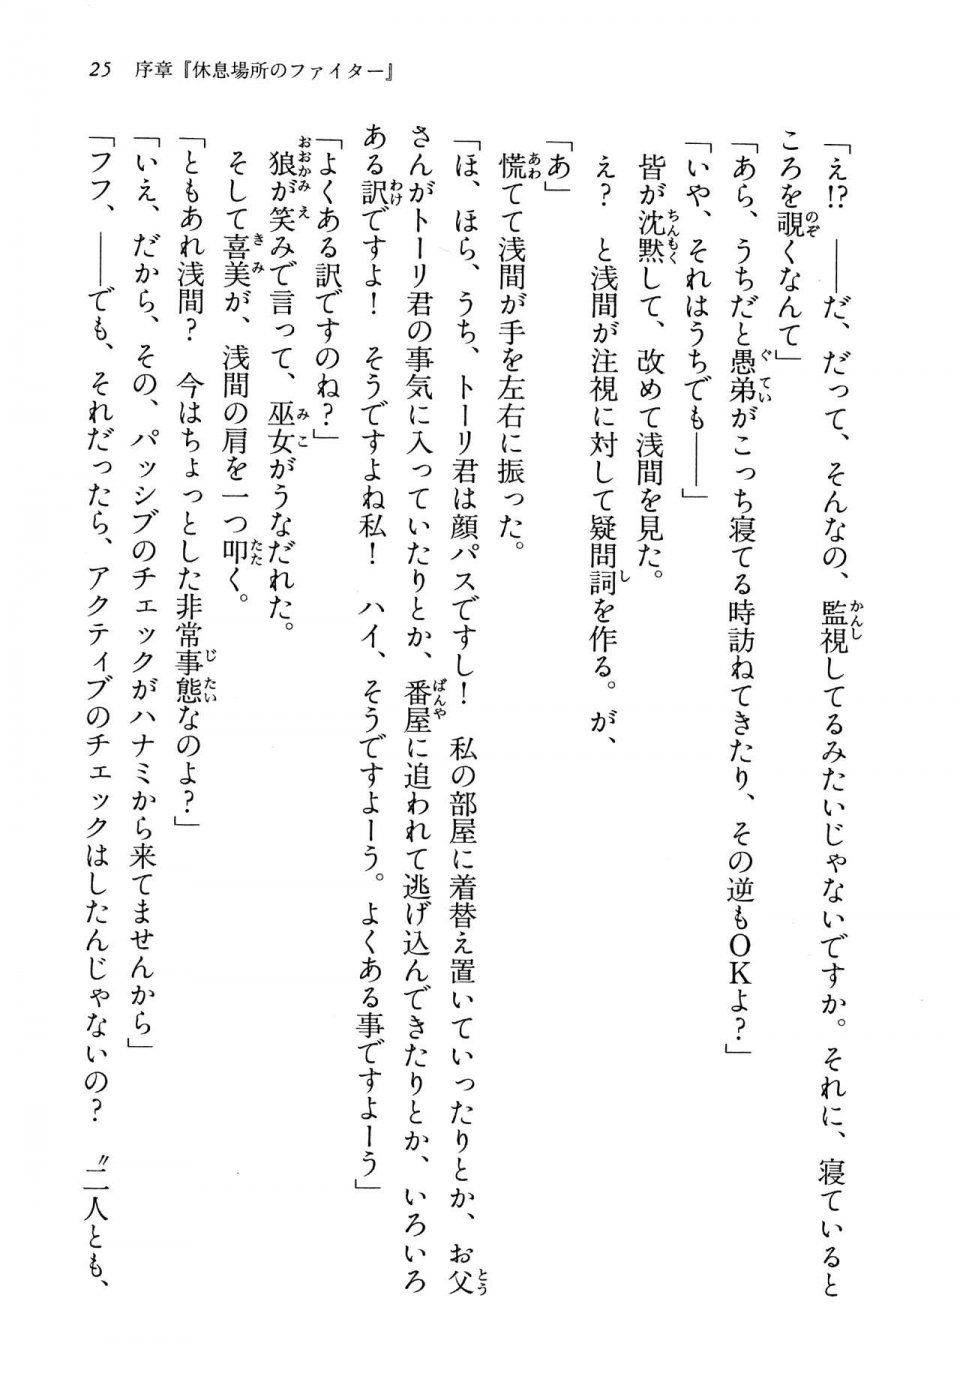 25　序章『休息場所のファイター』
「え!?　――だ、だって、そんなの、監視してるみたいじゃないですか。それに、寝ていると
ころを覗くなんて」
「あら、うちだと愚弟がこっち寝てる時訪ねてきたり、その逆もOKよ？」
「いや、それはうちでも――」
　皆が沈黙して、改めて浅間を見た。
　え？　と浅間が注視に対して疑問詞を作る。が、
「あ」
　慌てて浅間が手を左右に振った。
「ほ、ほら、うち、トーリ君は顔パスですし！　私の部屋に着替え置いていったりとか、お父
さんがトーリ君の事気に入っていたりとか、番屋に追われて逃げ込んできたりとか、いろいろ
ある訳ですよ！　そうですよね私！　ハイ、そうですよーう。よくある事ですよーう」
「よくある訳ですのね？」
　狼が笑みで言って、巫女がうなだれた。
　そして喜美が、浅間の肩を一つ叩く。
「ともあれ浅間？　今はちょっとした非常事態なのよ？」
「いえ、だから、その、パッシブのチェックがハナミから来てませんから」
「フフ、――でも、それだったら、アクティブのチェックはしたんじゃないの？　〝二人とも、